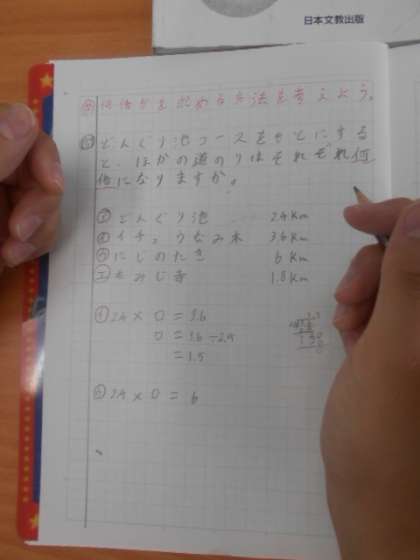 日本文教出版
め 何倍かを求める方法を考えよう。
も どんぐり池コースをもとにする
と、ほかの道のりはそれぞれ何
倍になりますか。
ア どんぐり池 2.4km
イ イチョウなみ木 3.6km
ウ にじのたき 6km
エ もみじ寺 1.8km
イ 2.4 × □ = 3.6
□ = 3.6 ÷ 2.4
= 1.5
ウ 2.4 × □ = 6